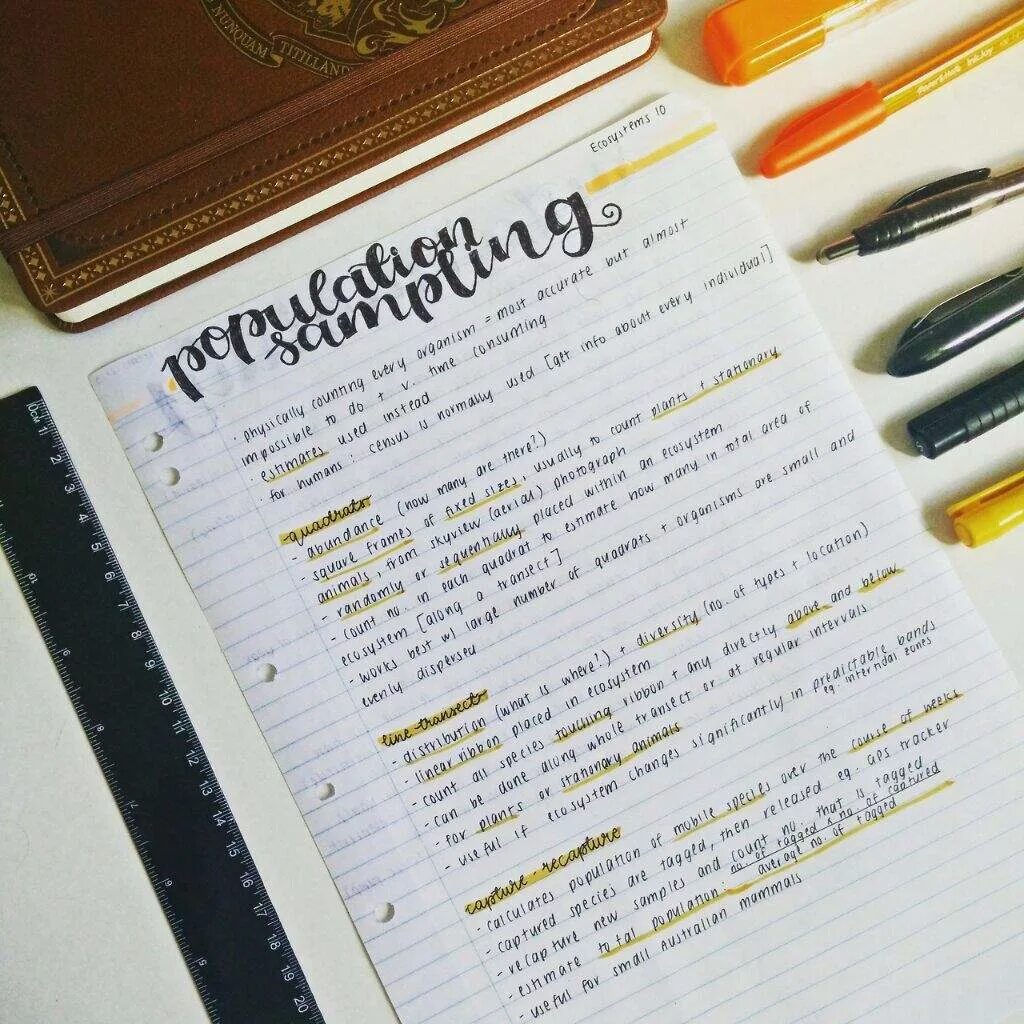 NUNQUAM TITILLAND
PaperMate InkJoy
Ecosystems 10
population
sampling
· physically counting every organism = most accurate but almost
impossible to do + v. time consuming
estimates used instead
· for humans: census is normally used [get info about every individual]
quadrats
- abundance (how many are there?)
- square frames of fixed sizes, usually to count plants + stationary
animals, from skyview (aerial) photograph
- randomly or sequentially placed within an ecosystem
- count no. in each quadrat to estimate how many in total area of
ecosystem [along a transect]
- works best w/ large number of quadrats + organisms are small and
evenly dispersed
line transect
- distribution (what is where?) + diversity (no. of types + location)
- linear ribbon placed in ecosystem
- count all species touching ribbon + any directly above and below
- can be done along whole transect or at regular intervals
- for plants or stationary animals
- useful if ecosystem changes significantly in predictable bands
eg. intertidal zones
capture-recapture
- calculates population of mobile species over the course of weeks
- captured species are tagged, then released eg. GPS tracker
- recapture new samples and count no. that is tagged
- estimate total population: no. of tagged x no. of captured
average no. of tagged
- useful for small Australian mammals
0cm 1 2 3 4 5 6 7 8 9 10 11 12 13 14 15 16 17 18 19 20